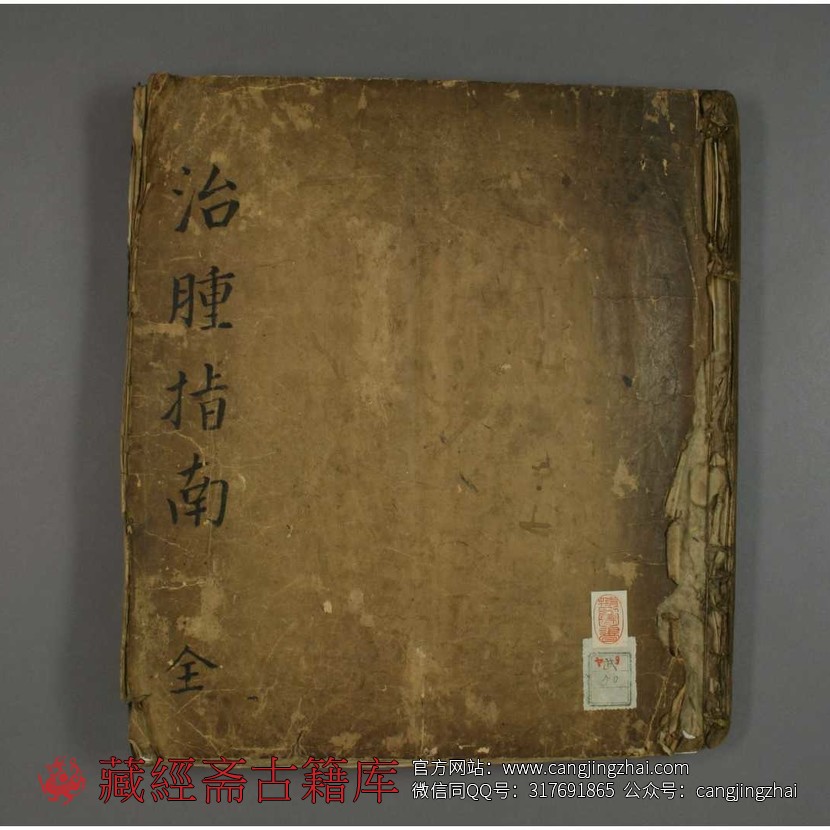 治腫指南
全
藏經斋古籍库
官方网站：www.cangjingzhai.com
微信同QQ号：317691865 公众号：cangjingzhai